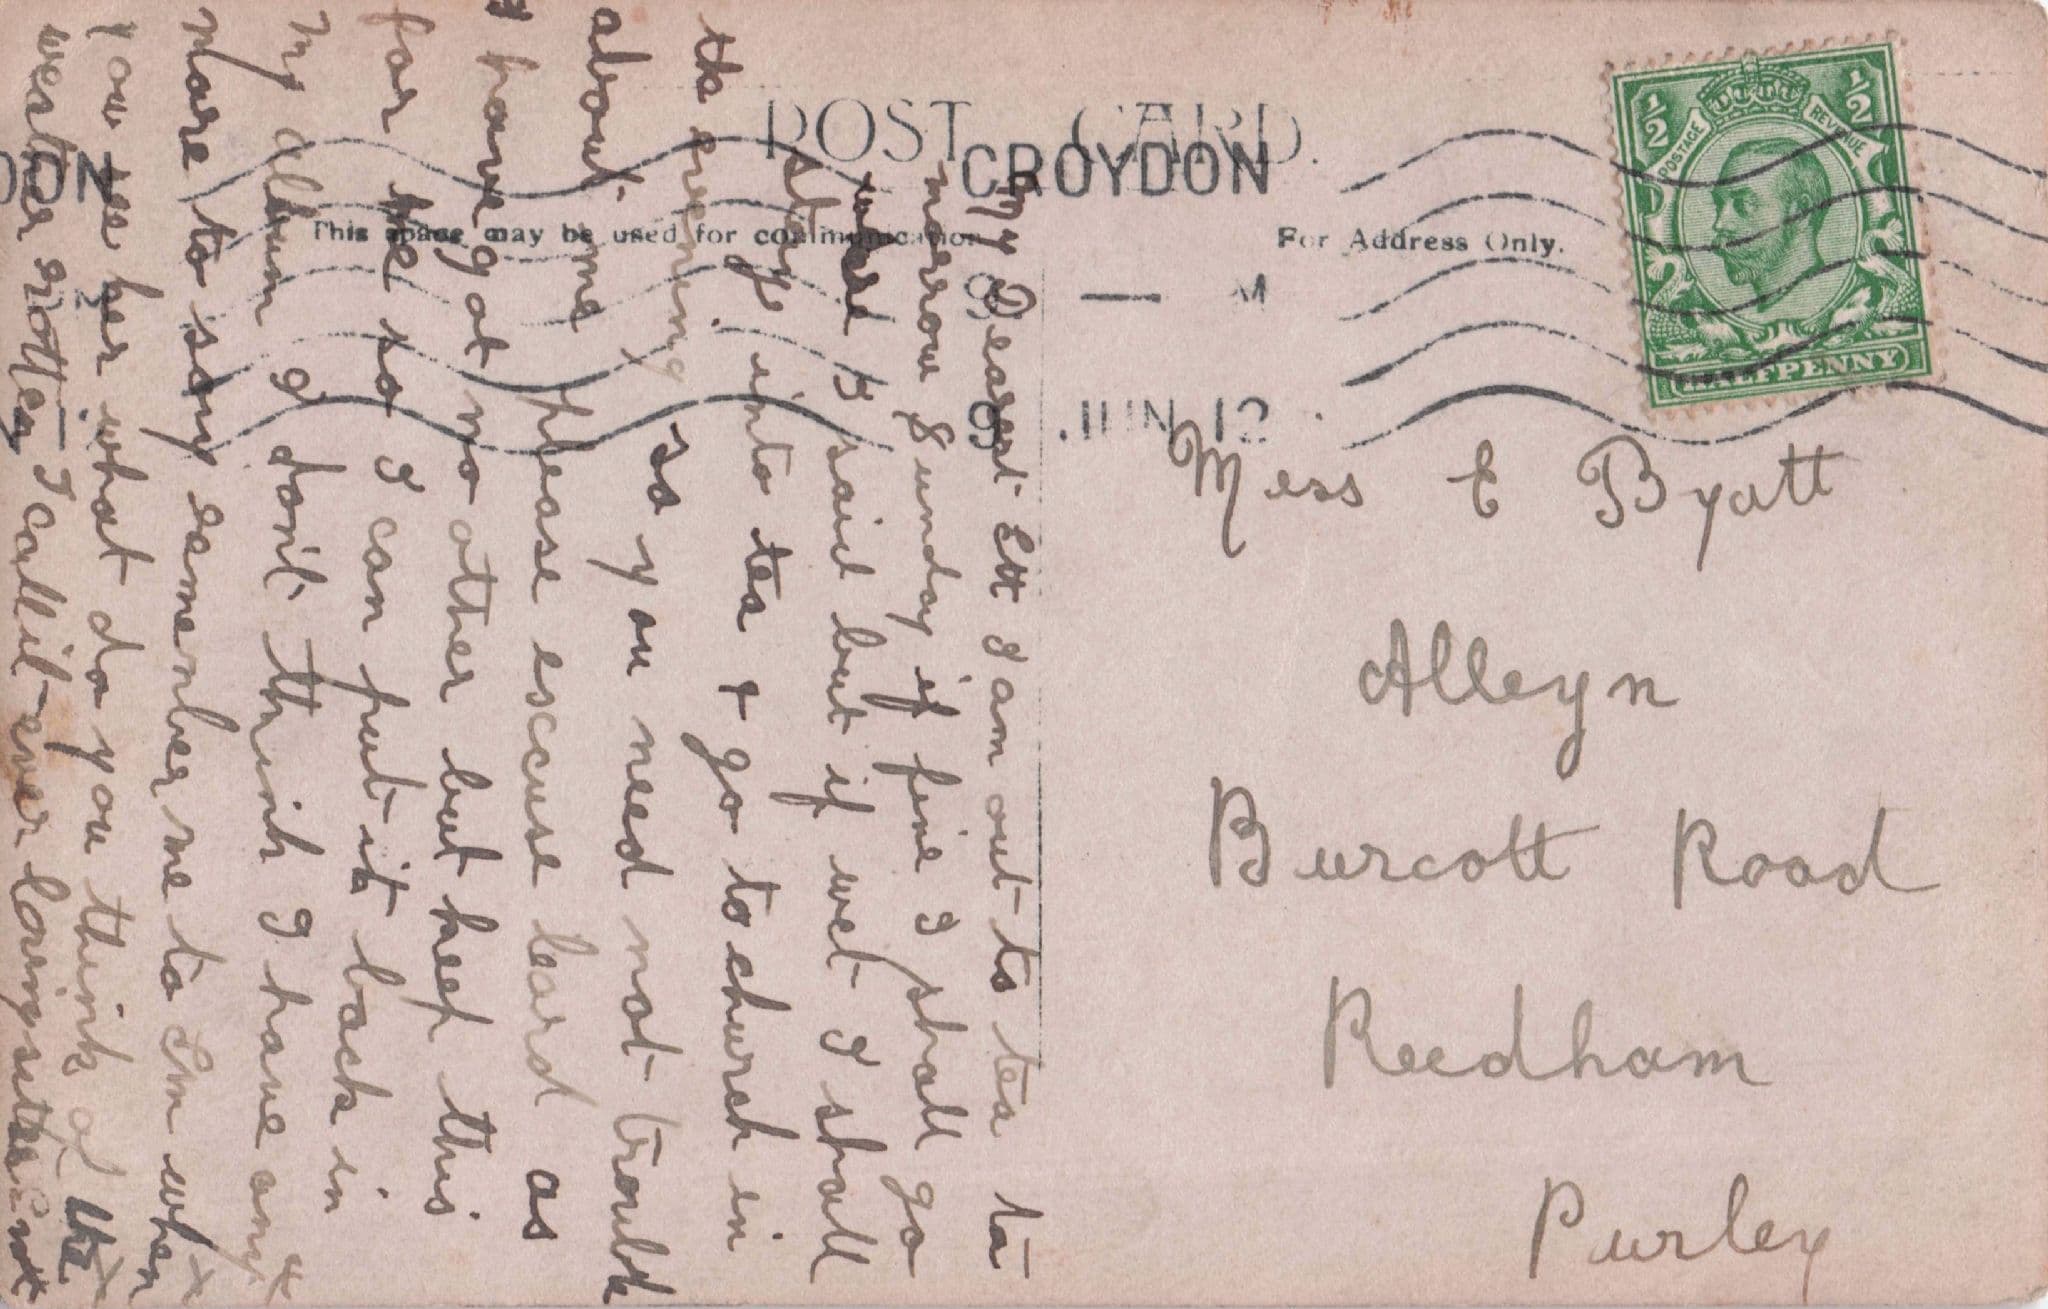 POST CARD.
CROYDON
DON
This space may be used for communication
For Address Only.
M
JUN 12
1/2
1/2
POSTAGE
REVENUE
HALFPENNY
Miss E Byatt
Alleyn
Burcott Road
Reedham
Purley
My Dearest Ett I am out to tea to
morrow Sunday if fine I shall go
where B said but if wet I shall
stay into tea + go to church in
the evening so you need not trouble
about me please esccuse card as
I have got no other but keep this
for me so I can put it back in
My album I don't think I have any
more to say remember me to Em when
you see her what do you think of the
weather rotten I call it ever loving
x x